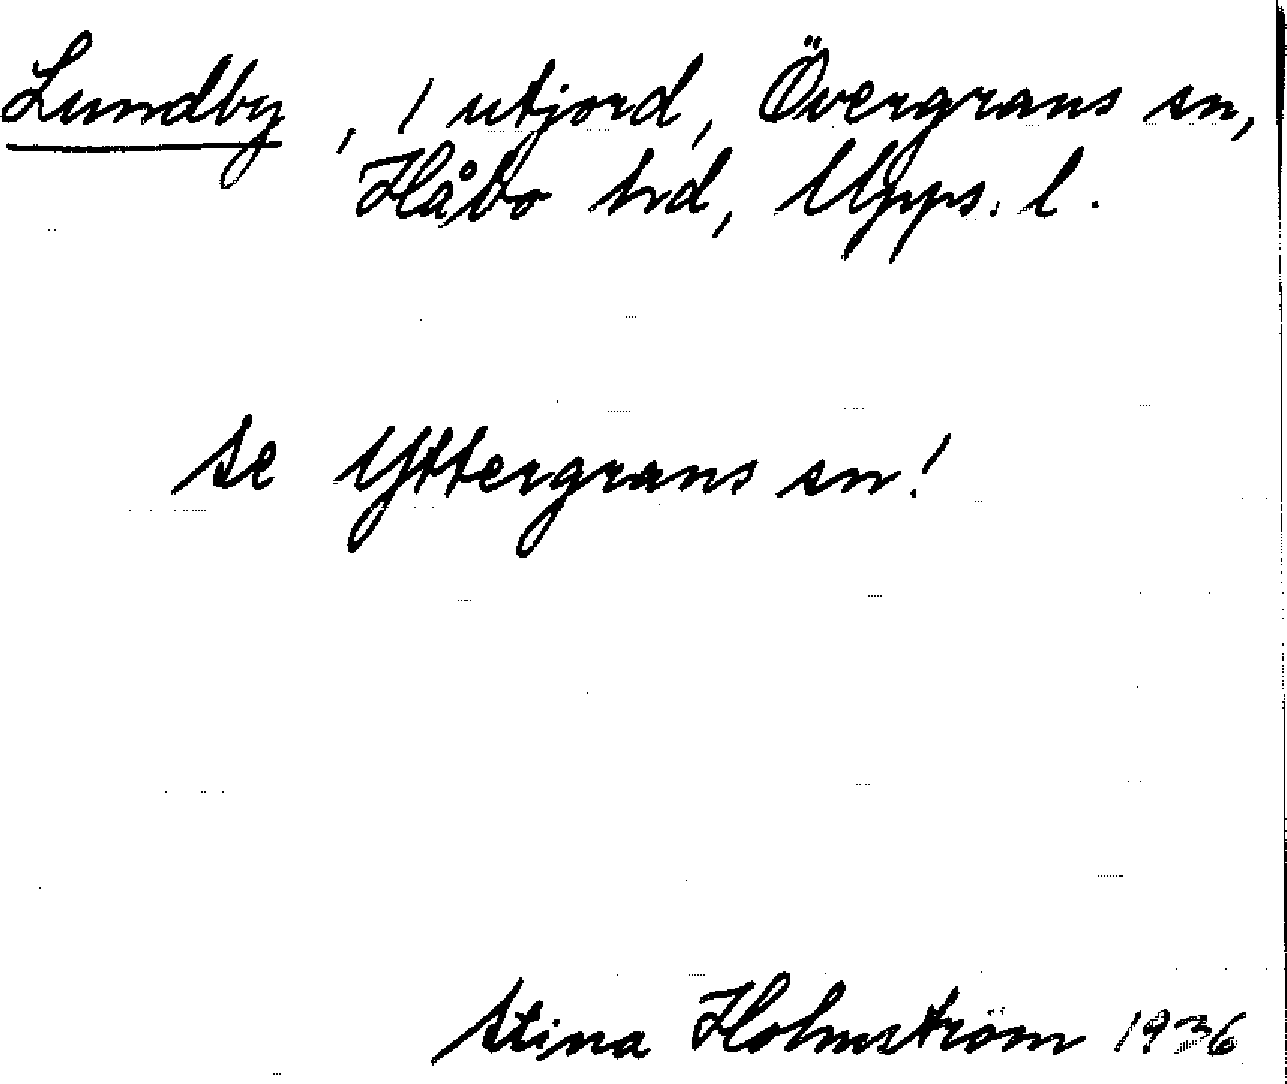 Lundby, 1 utjord, Övergrans sn,
Håbo hd, Upps. l.
se Yttergrans sn!
Stina Holmström 1936